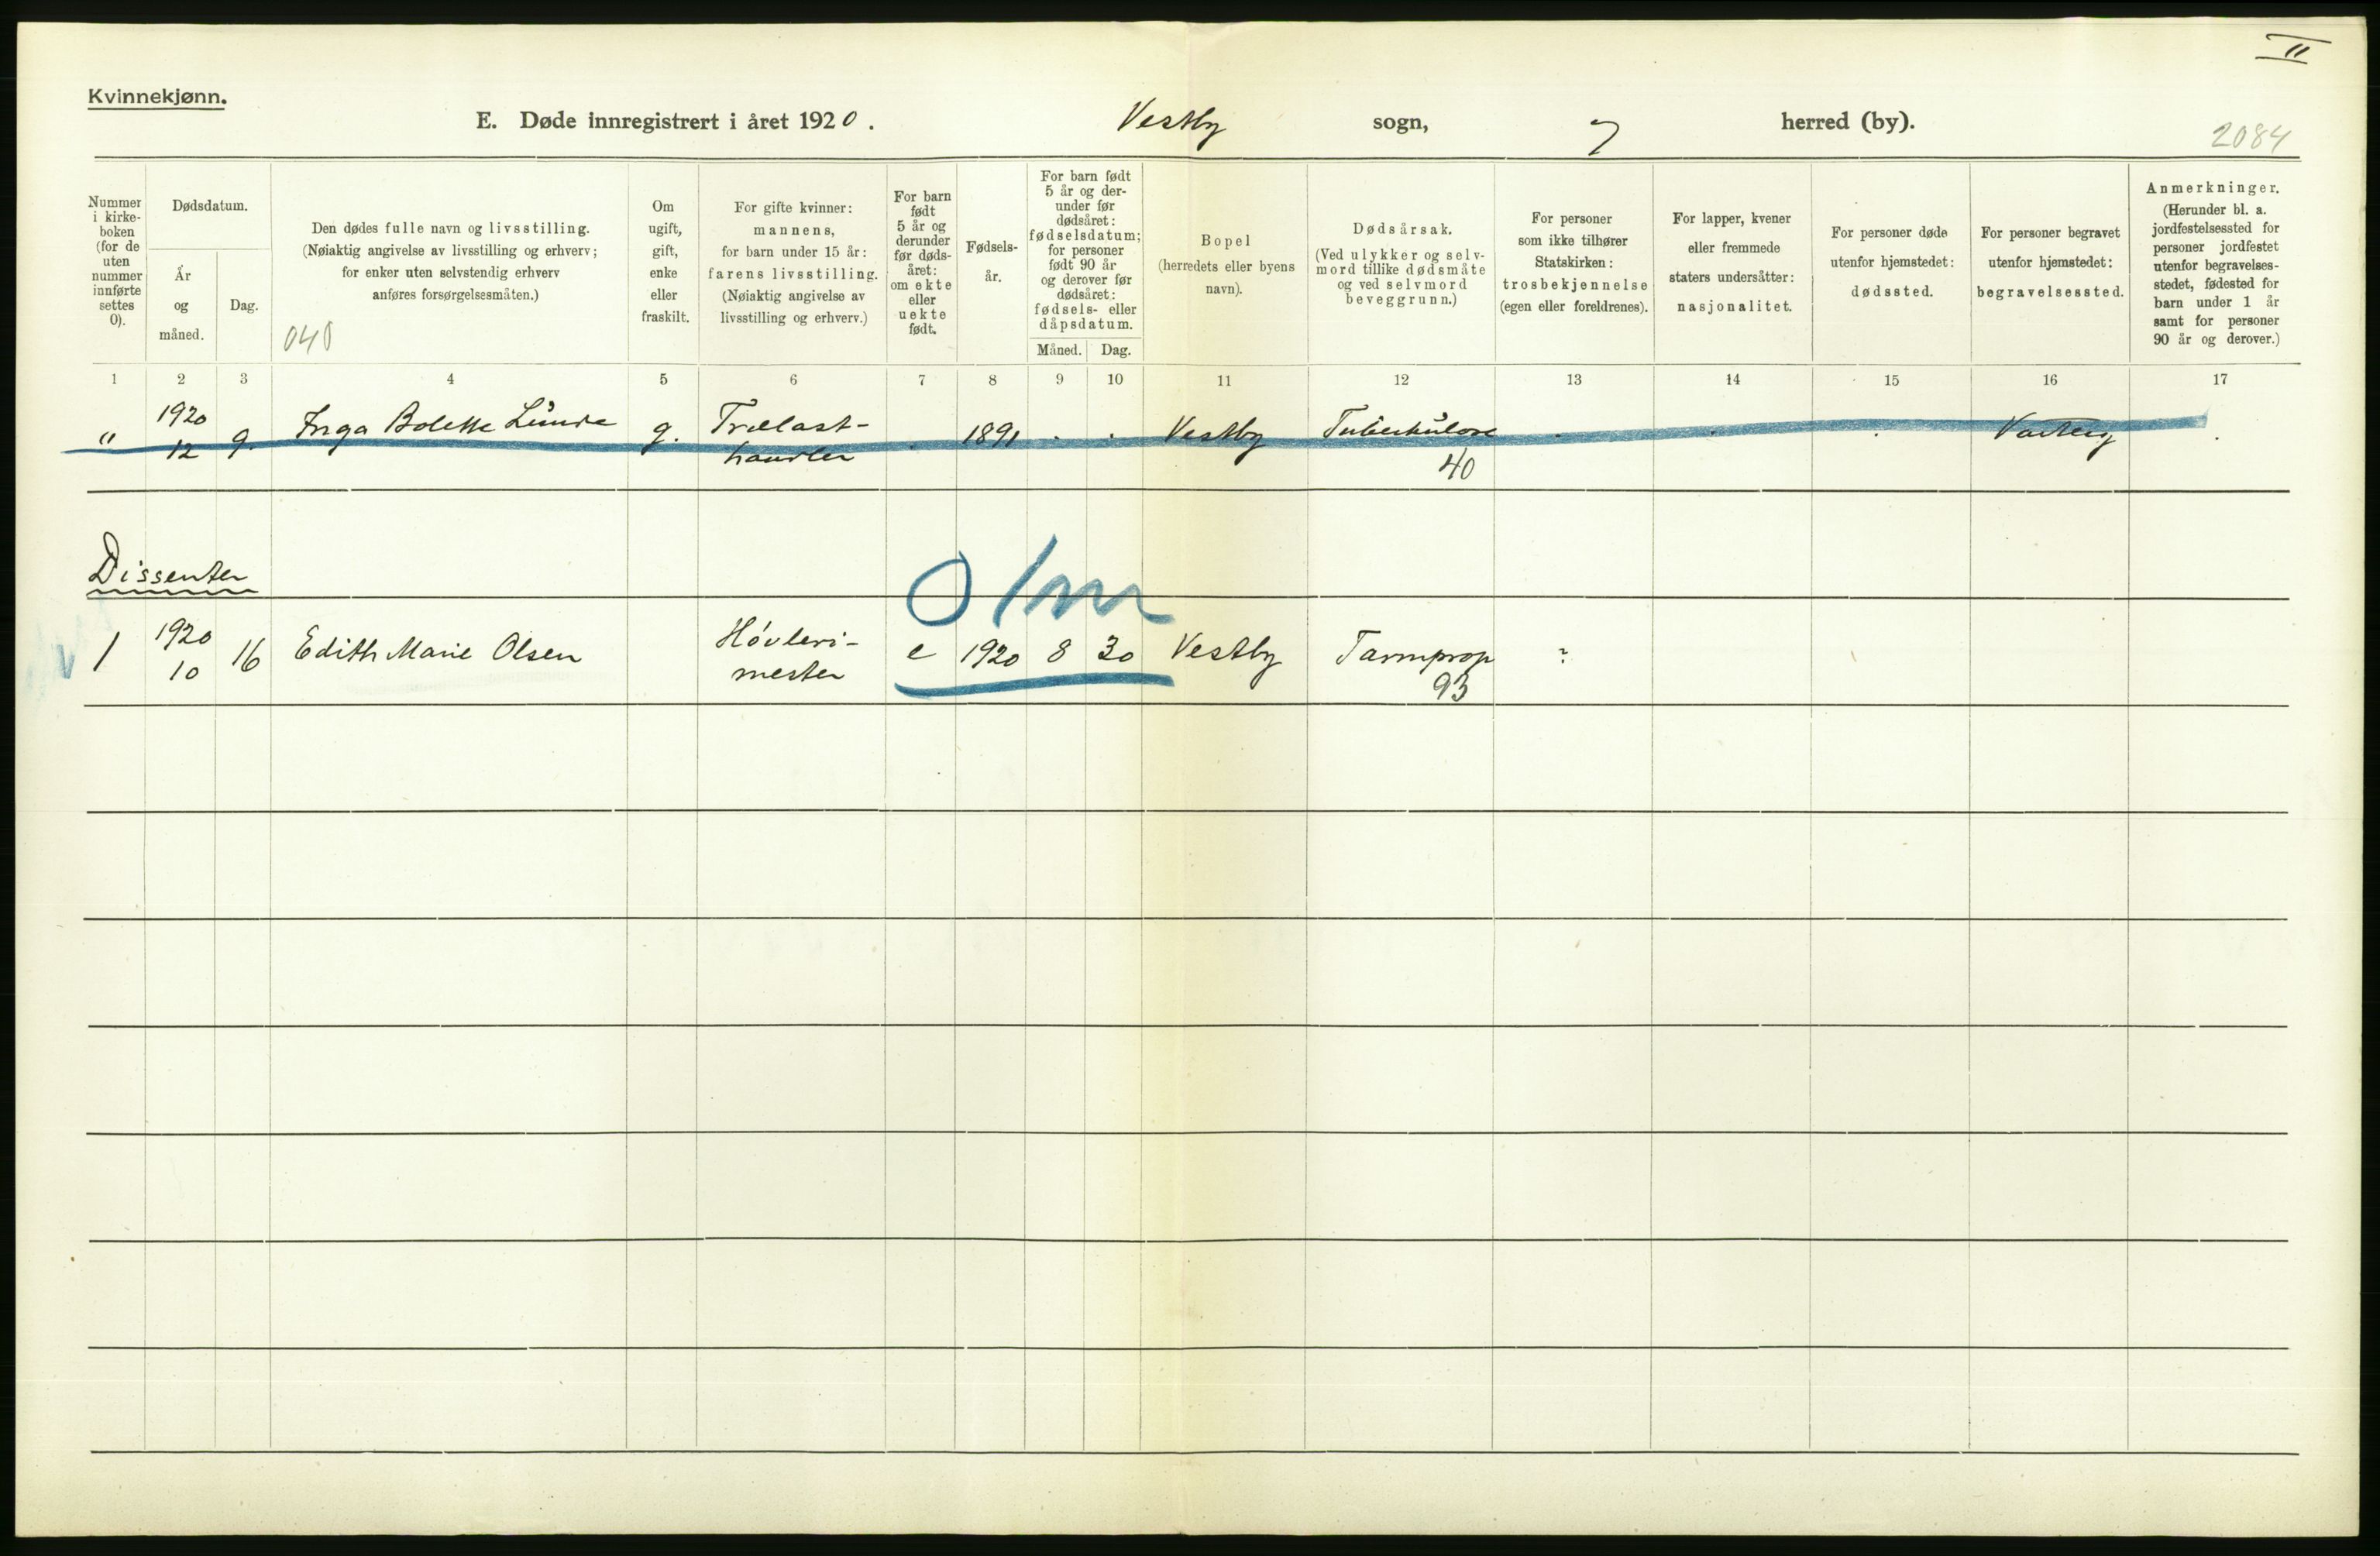 II
Kvinnekjønn.
E. Døde innregistrert i året 1920. Vestby sogn, " herred (by).
2084
Nummer i kirke- boken (for de uten nummer innførte settes 0).
Dødsdatum.
År og måned.
Dag.
Den dødes fulle navn og livsstilling.
(Nøiaktig angivelse av livsstilling og erhverv;
for enker uten selvstendig erhverv
anføres forsørgelsesmåten.)
040
Om ugift, gift, enke eller fraskilt.
For gifte kvinner:
mannens,
for barn under 15 år:
farens livsstilling.
(Nøiaktig angivelse av
livsstilling og erhverv.)
For barn født 5 år og derunder før døds- året: om ekte eller uekte født.
Fødsels- år.
For barn født 5 år og der- under før dødsåret: fødselsdatum; for personer født 90 år og derover før dødsåret: fødsels- eller dåpsdatum.
Måned. Dag.
Bopel
(herredets eller byens
navn).
Dødsårsak.
(Ved ulykker og selv-
mord tillike dødsmåte
og ved selvmord
beveggrunn.)
For personer
som ikke tilhører
Statskirken:
trosbekjennelse
(egen eller foreldrenes).
For lapper, kvener
eller fremmede
staters undersåtter:
nasjonalitet.
For personer døde
utenfor hjemstedet:
dødssted.
For personer begravet
utenfor hjemstedet:
begravelsessted.
Anmerkninger.
(Herunder bl. a.
jordfestelsessted for
personer jordfestet
utenfor begravelses-
stedet, fødested for
barn under 1 år
samt for personer
90 år og derover.)
1 2 3 4 5 6 7 8 9 10 11 12 13 14 15 16 17
" 1920 12 9. Inga Bolette Lunde g. Trælast- handler . 1891 . . Vestby Tuberkulose 40 . . . .
Dissenter
0 1 m
1 1920 10 16 Edith Marie Olsen Høvleri- mester e 1920 8 30 Vestby Tarmprop 93 ?